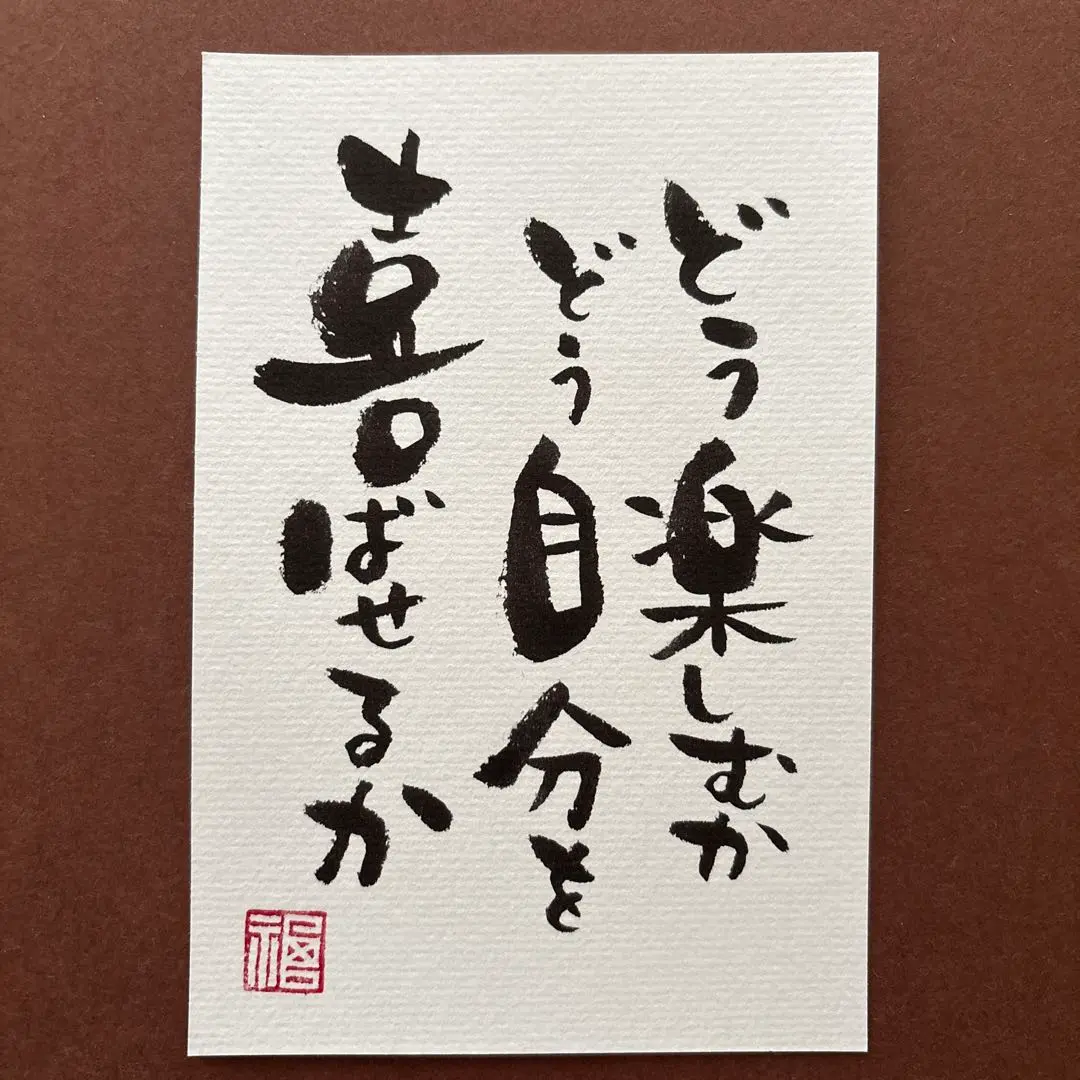 どう楽しむか
どう自分を
喜ばせるか